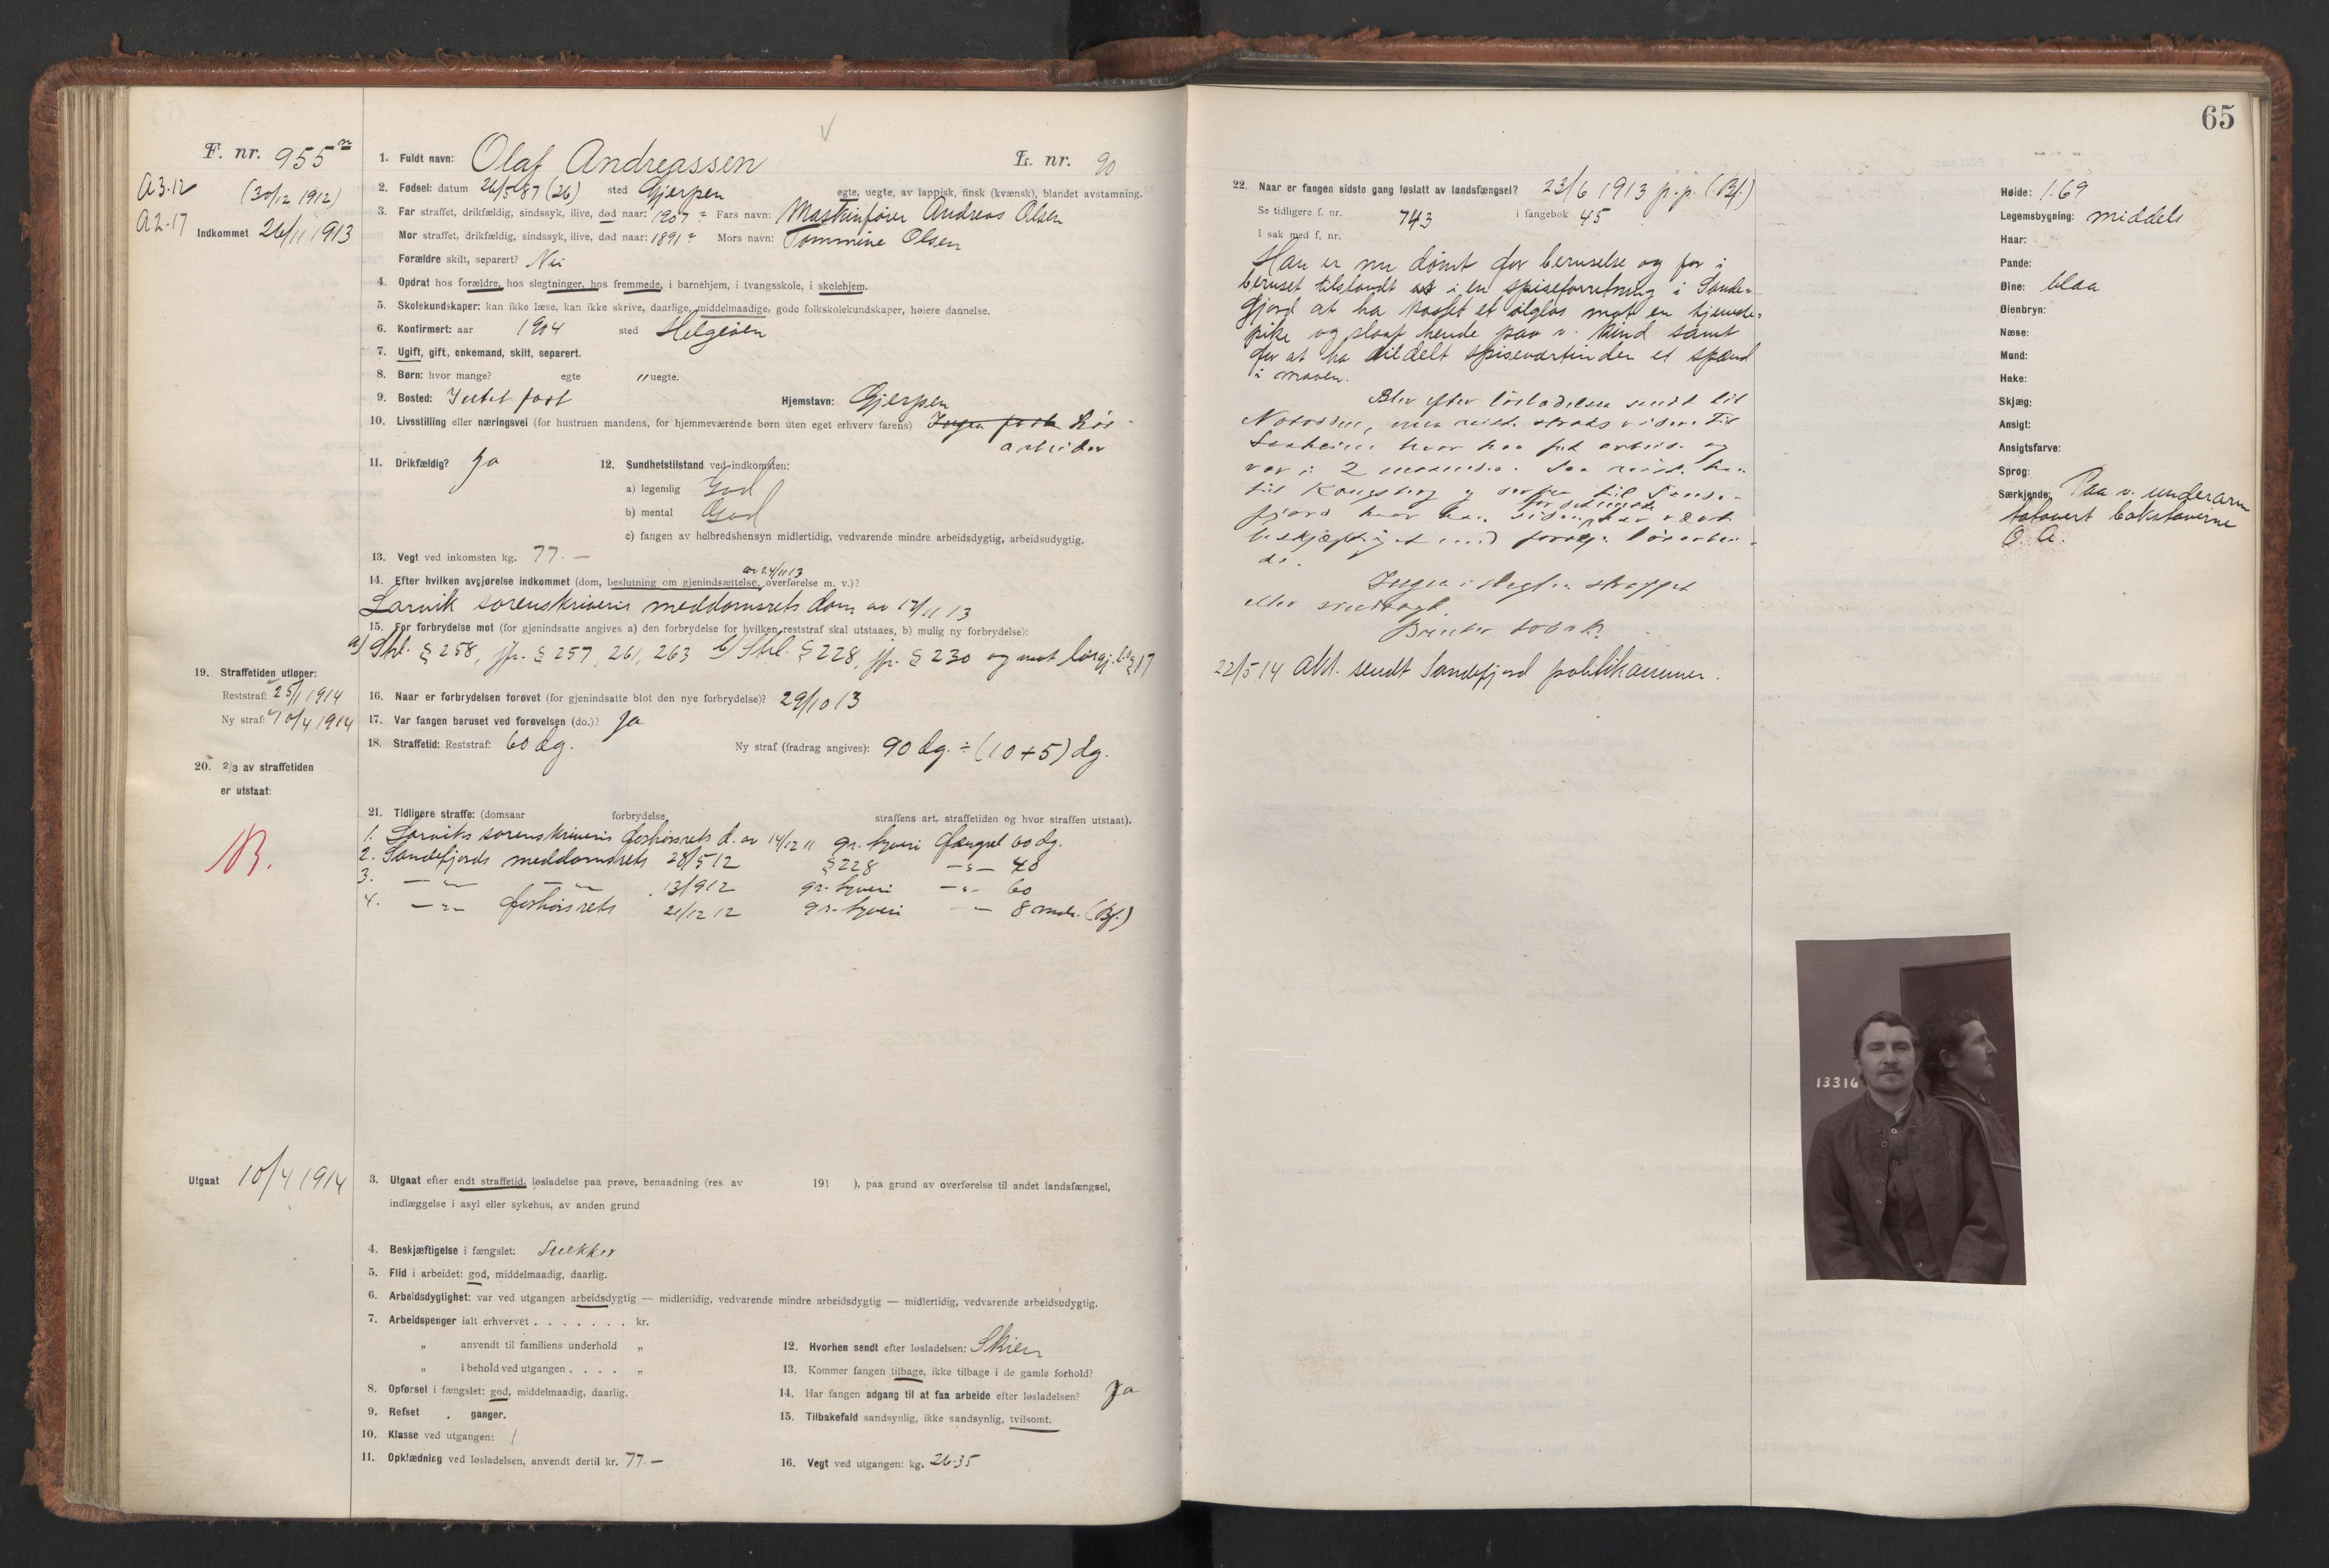 65
F. nr. 955
A3.12 (30/12 1912)
A2.17
Indkommet 26/11 1913
1. Fuldt navn: Olaf Andreassen L. nr. 90
2. Fødsel: datum 26/5 87 (26) sted Gjerpen egte, uegte, av lappisk, finsk (kvænsk), blandet avstamning.
3. Far straffet, drikfældig, sindssyk, ilive, død naar: 1907 Fars navn: Maskinfører Andreas Olsen
Mor straffet, drikfældig, sindssyk, ilive, død naar: 1891 Mors navn: Tommine Olsen
Forældre skilt, separert? Nei
4. Opdrat hos forældre, hos slegtninger, hos fremmede, i barnehjem, i tvangsskole, i skolehjem.
5. Skolekundskaper: kan ikke læse, kan ikke skrive, daarlige, middelmaadige, gode folkskolekundskaper, høiere dannelse.
6. Konfirmert: aar 1904 sted Helgeøen
7. Ugift, gift, enkemand, skilt, separert.
8. Børn: hvor mange? egte " uegte.
9. Bosted: Intet fast Hjemstavn: Gjerpen
10. Livsstilling eller næringsvei (for hustruen mandens, for hjemmeværende børn uten eget erhverv farens) Ingen faste Løs-
arbeider
11. Drikfældig? Ja 12. Sundhetstilstand ved indkomsten:
a) legemlig God
b) mental God
c) fangen av helbredshensyn midlertidig, vedvarende mindre arbeidsdygtig, arbeidsudygtig.
13. Vegt ved inkomsten kg. 77.—
av 24/11 13
14. Efter hvilken avgjørelse indkommet (dom, beslutning om gjenindsættelse, overførelse m. v.)?
Larvik sorenskriveris meddomsrets dom av 17/11 13
15. For forbrydelse mot (for gjenindsatte angives a) den forbrydelse for hvilken reststraf skal utstaaes, b) mulig ny forbrydelse):
a) Strl. § 258, jfr. § 257, 261, 263 b) Strl. § 228, jfr. § 230 og mot løsgj. l. § 17
19. Straffetiden utløper:
Reststraf: 25/1 1914
Ny straf: 10/4 1914
16. Naar er forbrydelsen forøvet (for gjenindsatte blot den nye forbrydelse)? 29/10 13
17. Var fangen beruset ved forøvelsen (do.)? Ja
18. Straffetid: Reststraf: 60 dg. Ny straf (fradrag angives): 90 dg. ÷ (10+5) dg.
20. 2/3 av straffetiden
er utstaat:
21. Tidligere straffe: (domsaar forbrydelse, straffens art, straffetiden og hvor straffen utstaat).
1. Larviks sorenskriveris forhørsrets d. av 14/12 11 gr. tyveri fængsel 60 dg.
2. Sandefjords meddomsrets 28/5 12 § 228 —"— 40
3. —"— —"— 13/9 12 gr. tyveri —"— 60
4. —"— forhørsrets 21/12 12 gr. tyveri —"— 8 mdr. (Bf.)
B.
Utgaat 10/4 1914
3. Utgaat efter endt straffetid, løsladelse paa prøve, benaadning (res. av 191 ), paa grund av overførelse til andet landsfængsel,
indlæggelse i asyl eller sykehus, av anden grund
4. Beskjæftigelse i fængslet: Snekker
5. Flid i arbeidet: god, middelmaadig, daarlig.
6. Arbeidsdygtighet: var ved utgangen arbeidsdygtig — midlertidig, vedvarende mindre arbeidsdygtig — midlertidig, vedvarende arbeidsudygtig.
7. Arbeidspenger ialt erhvervet . . . . . . . kr.
" anvendt til familiens underhold "
" i behold ved utgangen . . . . "
8. Opførsel i fængslet: god, middelmaadig, daarlig.
9. Refset . ganger.
10. Klasse ved utgangen: 1
11. Opklædning ved løsladelsen, anvendt dertil kr. 77.—
12. Hvorhen sendt efter løsladelsen: Skien
13. Kommer fangen tilbage, ikke tilbage i de gamle forhold?
14. Har fangen adgang til at faa arbeide efter løsladelsen? Ja
15. Tilbakefald sandsynlig, ikke sandsynlig, tvilsomt.
16. Vegt ved utgangen: kg. 26.35
22. Naar er fangen sidste gang løslatt av landsfængsel? 23/6 1913 p.p. (Bf.)
Se tidligere f. nr. 743 i fangebok 45
I sak med f. nr.
Han er nu dømt for beruselse og for i
beruset tilstandt i en spiseforretning i Sande-
fjord at ha kastet et ølglas mot en tjeneste-
pike og slaat hende paa v. kind samt
for at ha tildelt spisevertinden et spænd
i maven.
Blev efter løsladelsen sendt til
Notodden, men reiste straks videre til
Saaheim hvor han fik arbeide og
var i 2 maaneder. Saa reiste han
til Kongsberg og derfra til Sande-
fjord hvor han siden for det meste har været
beskjæftiget med forskj. løsarbei-
de.
Ingen i slegten straffet
eller sindssyk.
Bruker tobak.
22/5 14 Akt. sendt Sandefjord politikammer.
Høide: 1.69
Legemsbygning: middels
Haar:
Pande:
Øine: blaa
Øienbryn:
Næse:
Mund:
Hake:
Skjæg:
Ansigt:
Ansigtsfarve:
Sprog:
Særkjende: Paa v. underarm
tatovert bokstaverne
O. A.
13316